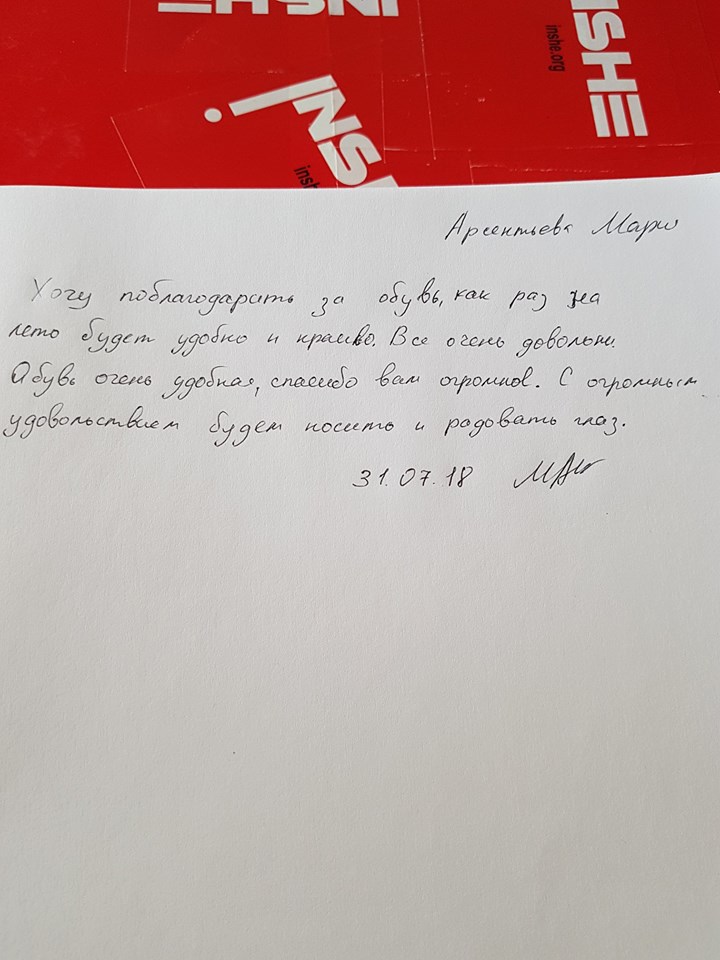 INSHE
INSHE
inshe.org
INSHE
inshe
Арсентьева Мария
Хочу поблагодарить за обувь, как раз на
лето будет удобно и красиво. Все очень довольны.
Обувь очень удобная, спасибо вам огромное. С огромным
удовольствием будем носить и радовать глаз.
31.07.18